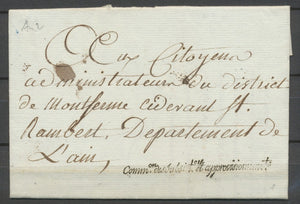 An 2
Aux Citoyens
administrateurs du district
de Montferme cidevant St.
Rambert, Departement de
L'ain,
Common. des Subsces. et approvisionnemts.